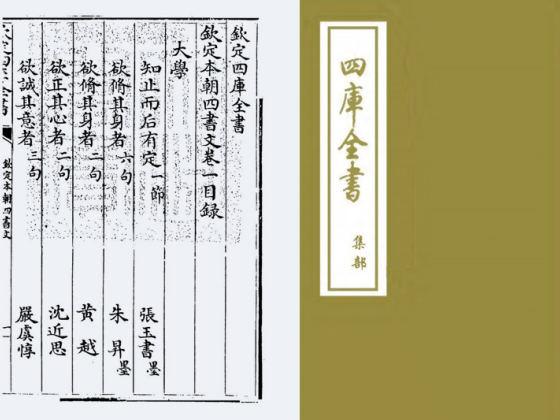 欽定四庫全書
欽定本朝四書文卷一目録
大學
知止而后有定一節 張玉書墨
欲脩其身者六句 朱昇墨
欲脩其身者二句 黄越
欲正其心者二句 沈近思
欲誠其意者三句 嚴虞惇
欽定本朝四書文
四庫全書
集部